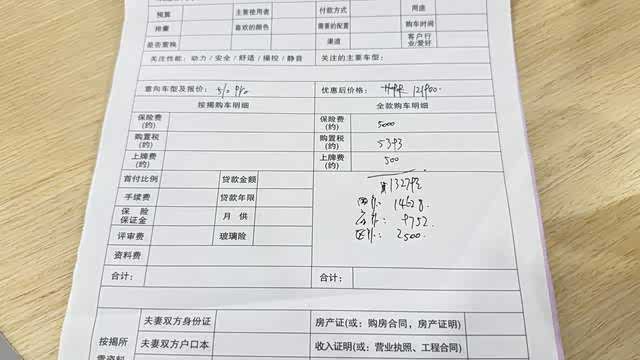 预算 主要使用者 付款方式 用途
排量 喜欢的颜色 需要的配置 购车时间
是否置换 渠道 客户行业/爱好
关注性能：动力/安全/舒适/操控/静音 关注的主要车型：
意向车型及报价： 优惠后价格： 121900
按揭购车明细 全款购车明细
保险费(约) 保险费(约) 5000
购置税(约) 购置税(约) 5393
上牌费(约) 上牌费(约) 500
首付比例 贷款金额 132793
手续费 贷款年限 14628
保险保证金 月供 9752
评审费 玻璃险 2500
资料费
合计： 合计：
夫妻双方身份证 房产证(或：购房合同，房产证明)
按揭所需资料 夫妻双方户口本 收入证明(或：营业执照、工程合同)